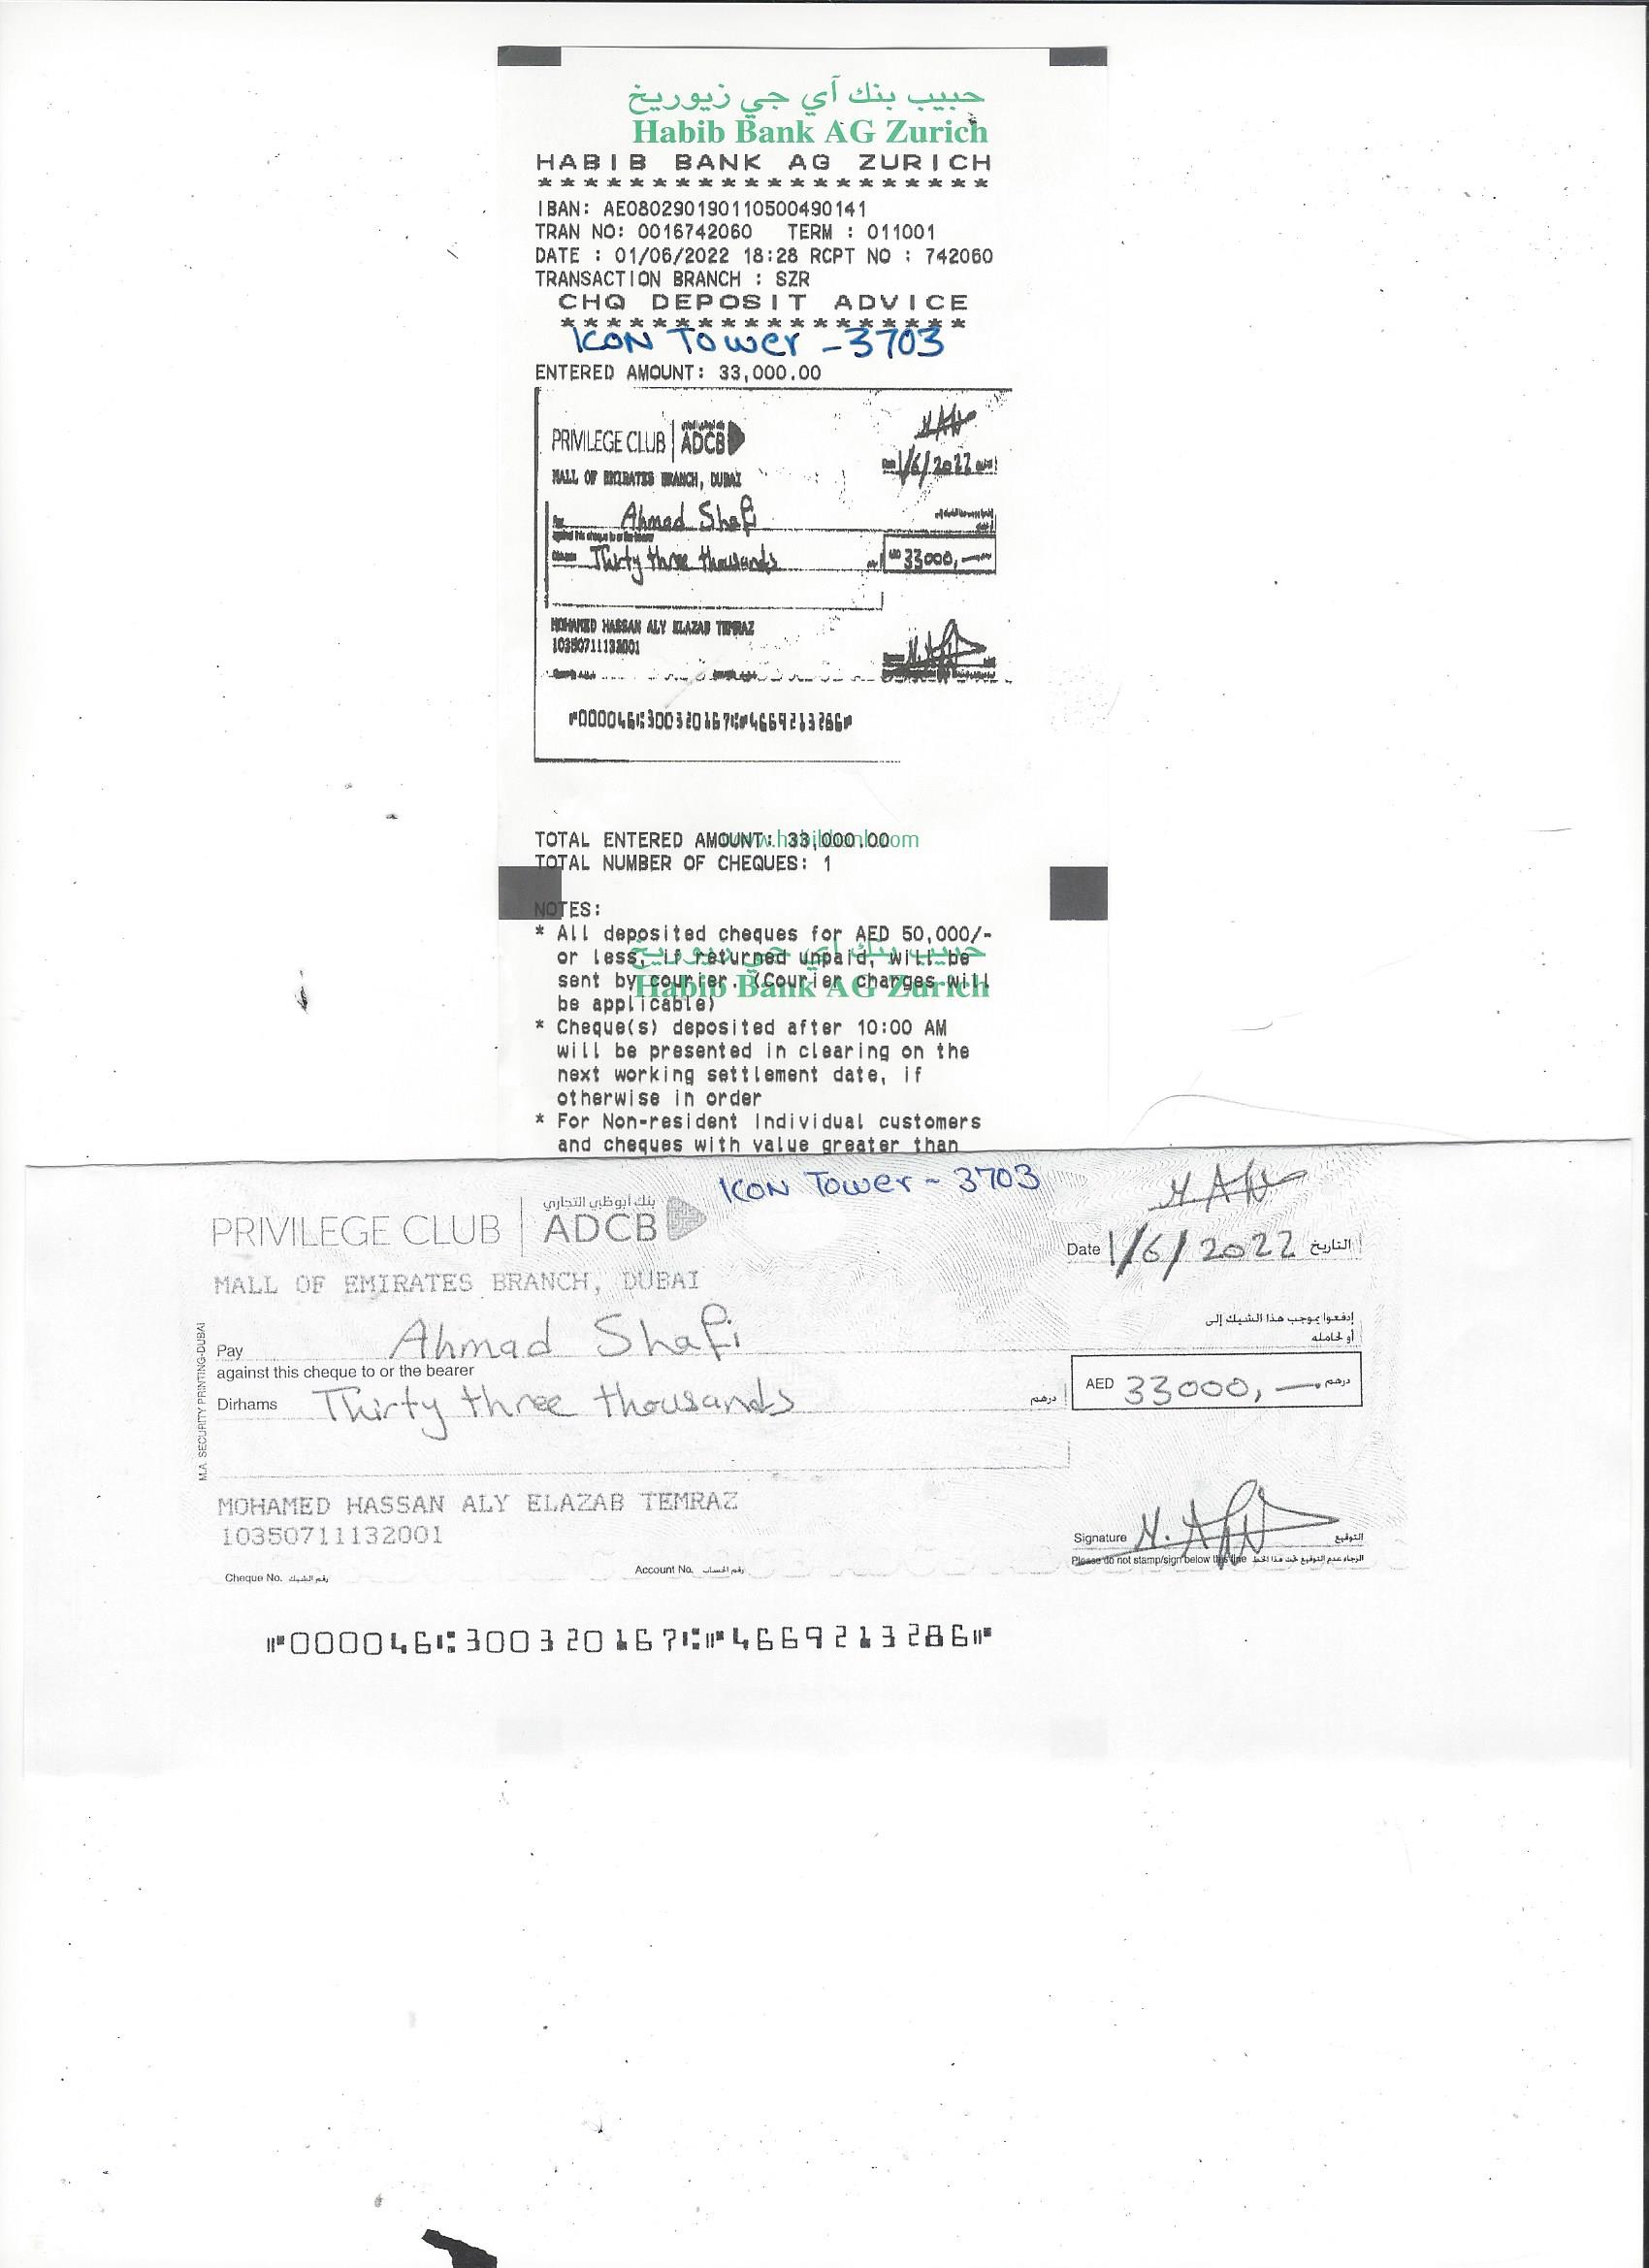 حبيب بنك آي جي زيوريخ
Habib Bank AG Zurich
HABIB BANK AG ZURICH
********************
IBAN: AE080290190110500490141
TRAN NO: 0016742060 TERM : 011001
DATE : 01/06/2022 18:28 RCPT NO : 742060
TRANSACTION BRANCH : SZR
CHQ DEPOSIT ADVICE
******************
ICON Tower - 3703
ENTERED AMOUNT: 33,000.00
PRIVILEGE CLUB ADCB
Date 1/6/2022
MALL OF EMIRATES BRANCH, DUBAI
Ahmad Shafi
against this cheque to or the bearer
Thirty three thousands 33000,-
MOHAMED HASSAN ALY ELAZAB TEMRAZ
10350711132001
⑈000046⑆300320167⑆⑈4669213286⑈
www.habibbank.com
TOTAL ENTERED AMOUNT: 33,000.00
TOTAL NUMBER OF CHEQUES: 1
NOTES:
* All deposited cheques for AED 50,000/-
حبيب بنك آي جي زيوريخ
or less, if returned unpaid, will be
sent by courier. (Courier charges will
Habib Bank AG Zurich
be applicable)
* Cheque(s) deposited after 10:00 AM
will be presented in clearing on the
next working settlement date, if
otherwise in order
* For Non-resident Individual customers
and cheques with value greater than
ICON Tower - 3703
بنك أبوظبي التجاري
PRIVILEGE CLUB ADCB
Date 1/6/2022 التاريخ
MALL OF EMIRATES BRANCH, DUBAI
إدفعوا بموجب هذا الشيك إلى
أو لحامله
Pay Ahmad Shafi
against this cheque to or the bearer
AED 33000,- درهم
Dirhams Thirty three thousands درهم
M.A. SECURITY PRINTING-DUBAI
MOHAMED HASSAN ALY ELAZAB TEMRAZ
10350711132001
Signature التوقيع
Please do not stamp/sign below this line الرجاء عدم التوقيع تحت هذا الخط
Cheque No. رقم الشيك Account No. رقم الحساب
⑈000046⑆300320167⑆⑈4669213286⑈